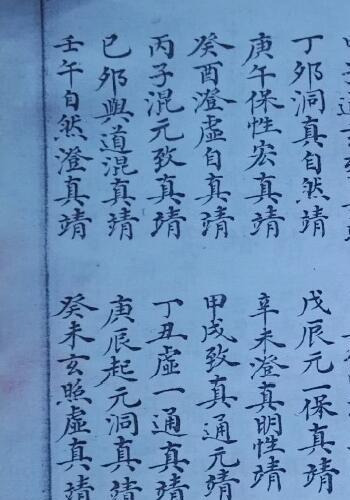 丁夘洞真自然靖
戊辰元一保真靖
庚午保性宏真靖
辛未澄真明性靖
癸酉澄虛自真靖
甲戌致真通元靖
丙子混元致真靖
丁丑虛一通真靖
已夘與道混真靖
庚辰起元洞真靖
壬午自然澄真靖
癸未玄照虛真靖